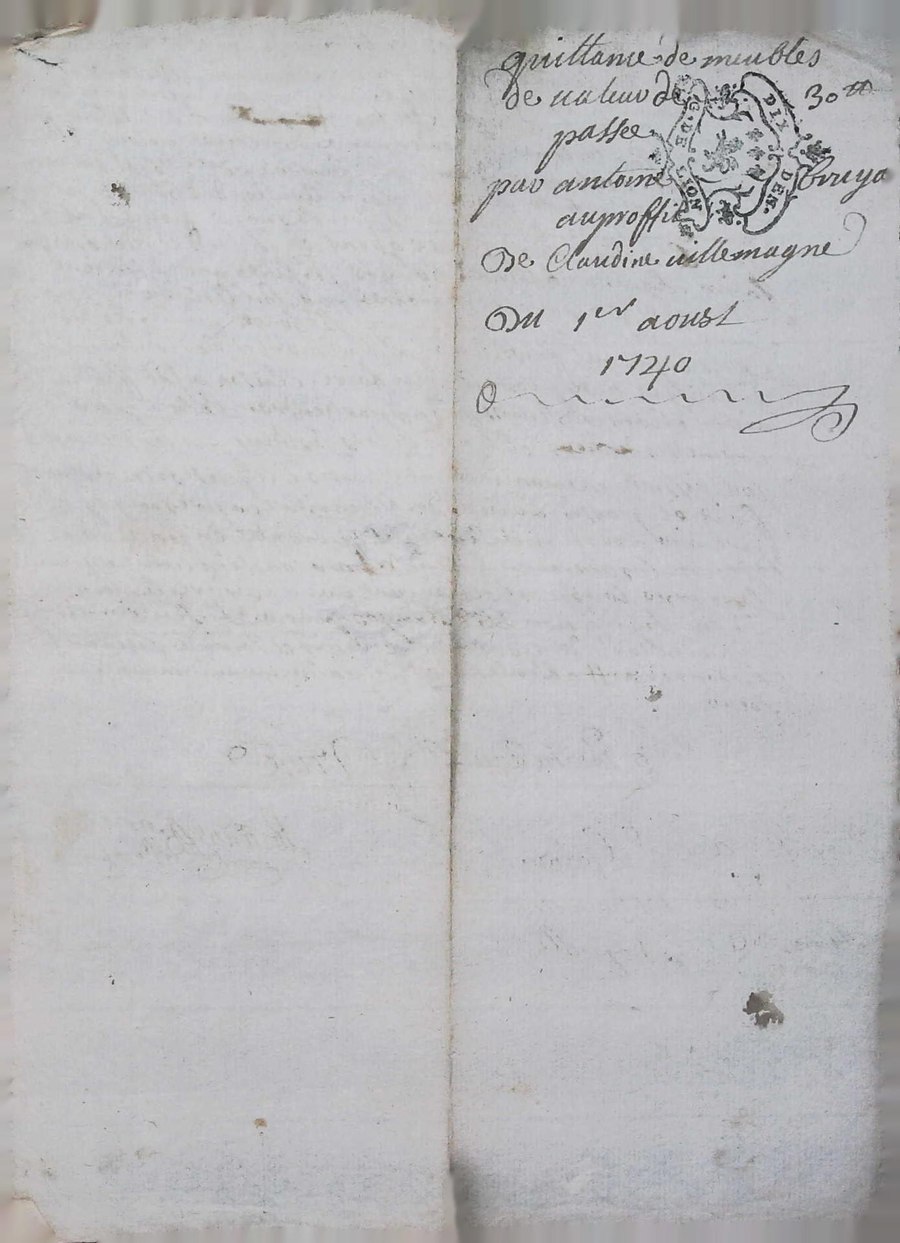 quittance de meubles
de valeur de 30 ₶
passée
par antoine Bruya
au proffit
De Claudine villemagne
Du 1er aoust
1740
G. DE LION
DIX DEN.